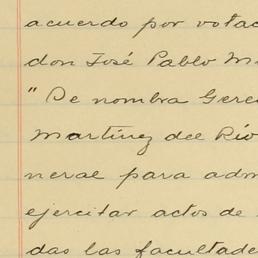 acuerdo por votac
don José Pablo M
"Se nombra Gere
Martínez del Río
neral para adm
ejercitar actos de
das las facultade